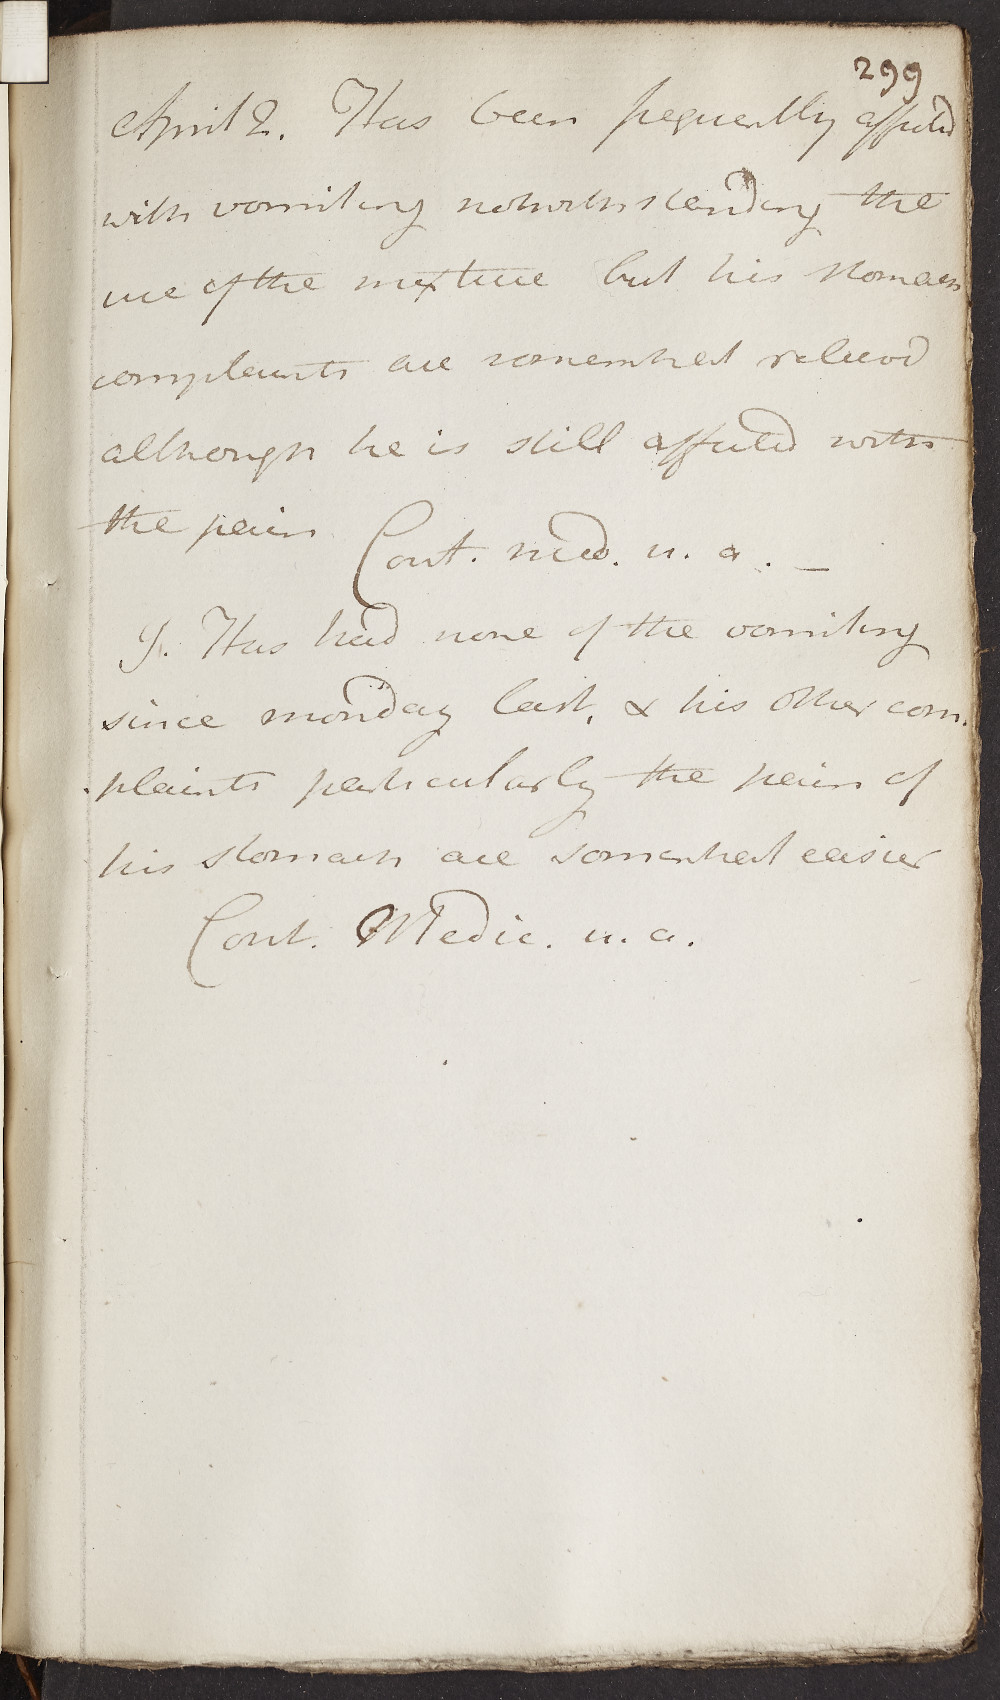 299
April 2. Has been frequently affected
with vomiting notwithstanding the
use of the mixture but his stomach
complaints are somewhat relieved
although he is still affected with
the pain
Cont. med. u. a. —
9. Has had none of the vomiting
since monday last, & his other com.
plaints particularly the pain of
his stomach are somewhat easier
Cont. Medic. u. a.